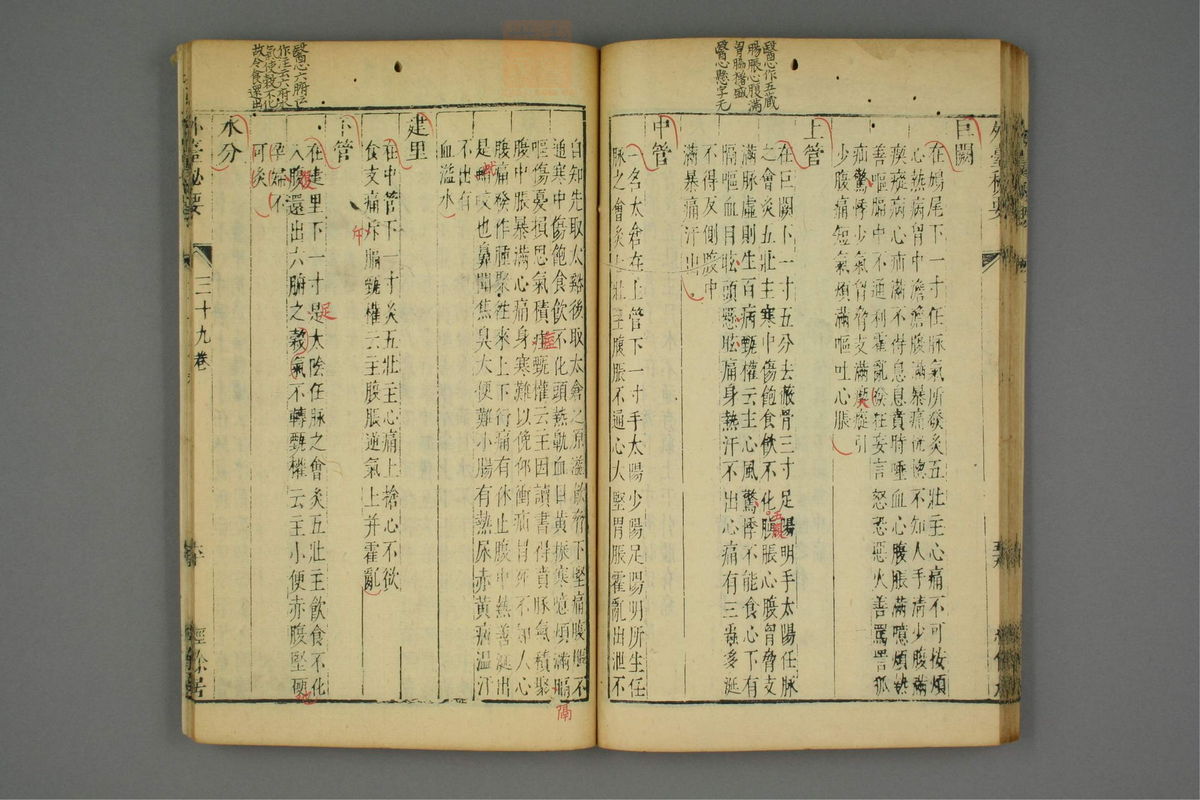 醫心作五藏
腸脹心腹滿
醫心懸字无
巨闕
在鳩尾下一寸任脉氣所發灸五壯主心痛不可按煩
心熱病胃中澹澹腹滿暴痛恍惚不知人手清少腹滿
瘈瘲病心疝滿不得息息賁時唾血心腹脹滿噫煩熱
善嘔膈中不通利霍亂發狂妄言怒恐惡火善罵詈狐
疝驚悸少氣胷脅支滿瘈瘲引
少腹痛短氣煩滿嘔吐心脹
上管
在巨闕下一寸五分去蔽骨三寸足陽明手太陽任脉
之會灸五壯主寒中傷飽食飲不化膹脹心腹胷脅支
滿脉虛則生百病甄權云主心風驚悸不能食心下有
隔嘔血目眩頭懸眩痛身熱汗不出心痛有三蟲多涎
不得反側腹中
滿暴痛汗出
中管
一名太倉在上管下一寸手太陽少陽足陽明所生任
脉之會灸七壯主腹脹不通心大堅胃脹霍亂出泄不
自知先取太谿後取太倉之原溢飲脅下堅痛腹脹不
通寒中傷飽食飲不化頭熱鼽血目黃振寒噫煩滿膈
嘔傷憂損思氣積疰甄權云主因讀書得賁豚氣積聚
腹中脹暴滿心痛身寒難以俛仰衝疝冒死不知人心
腹痛發作腫聚往來上下行痛有休止腹中熱善涎出
是蚘咬也鼻聞焦臭大便難小腸有熱尿赤黃病温汗
不出有
血溢水
建里
在中管下一寸灸五壯主心痛上搶心不欲
食支痛斥膈甄權云主腹脹逆氣上并霍亂
下管
在建里下一寸是太陰任脉之會灸五壯主飲食不化
入腹還出六腑之穀氣不轉甄權云主小便赤腹堅硬
孕婦不
可灸
水分
外臺秘要
三十九卷
經餘居